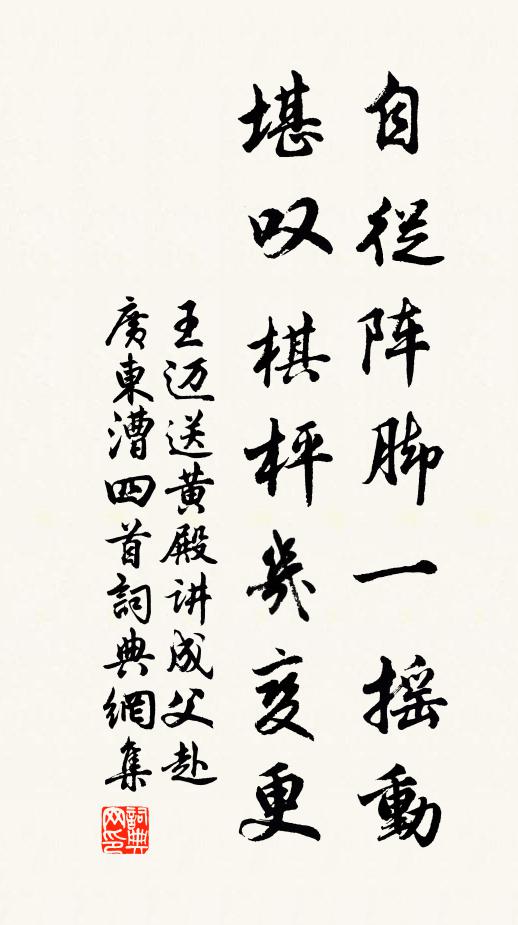 自從阵脚一摇動
堪叹棋枰幾变更
王迈送黄殿讲成父赴
廣東漕四首詞典網集
詞典网印